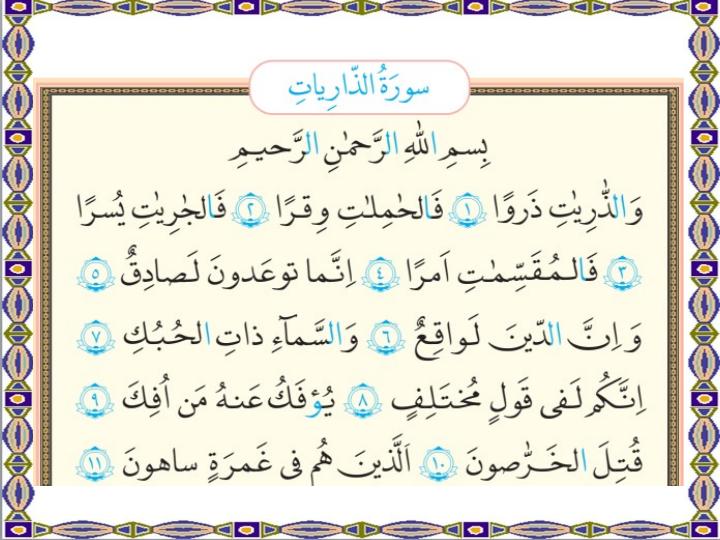 سورَةُ الذّارِیاتِ
بِسمِ اللّٰهِ الرَّحمٰنِ الرَّحیمِ
وَالذّٰرِیٰتِ ذَروًا ﴿١﴾ فَالحٰمِلٰتِ وِقرًا ﴿٢﴾ فَالجٰرِیٰتِ یُسرًا
﴿٣﴾ فَالمُقَسِّمٰتِ اَمرًا ﴿٤﴾ اِنَّما توعَدونَ لَصادِقٌ ﴿٥﴾
وَ اِنَّ الدّینَ لَواقِعٌ ﴿٦﴾ وَالسَّمآءِ ذاتِ الحُبُكِ ﴿٧﴾
اِنَّكُم لَفی قَولٍ مُختَلِفٍ ﴿٨﴾ یُؤفَكُ عَنهُ مَن اُفِكَ ﴿٩﴾
قُتِلَ الخَرّٰصونَ ﴿١٠﴾ اَلَّذینَ هُم فی غَمرَةٍ ساهونَ ﴿١١﴾